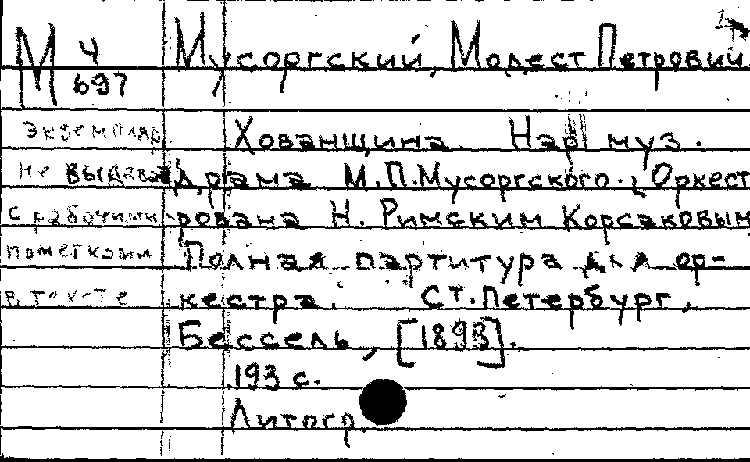 М Ч 697
Мусоргский, Модест Петрович
Хованщина Нар муз.
драма М.П.Мусоргского. Оркест
рована Н. Римским Корсаковым
Полная партитура для ор-
кестра. Ст.Петербург,
Бессель, [1893].
193 с.
Литогр.
Экземпляр
не выдавать
с рабочими
пометками
в тексте